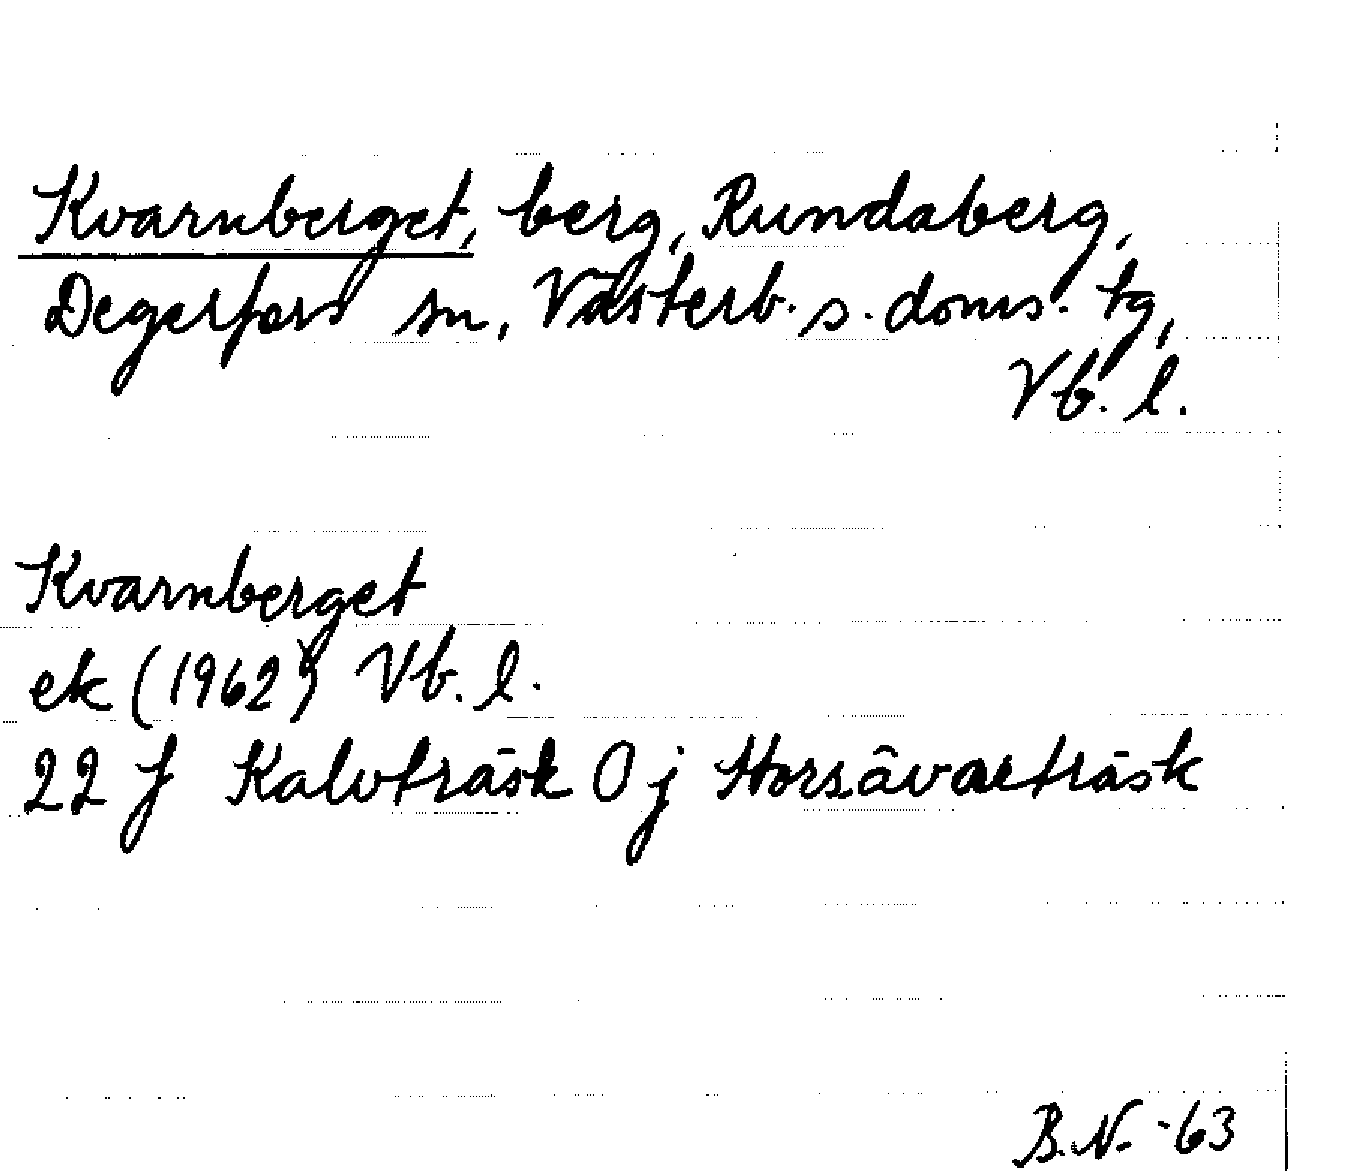 Kvarnberget, berg, Rundaberg,
Degerfors sn, Västerb. s. doms. tg,
Vb. l.
Kvarnberget
ek (1962) Vb. l.
22 J Kalvträsk 0 j
B.N. -63